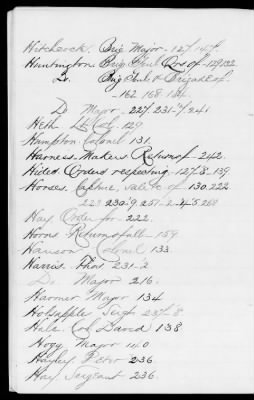 Hitchcock. Brig Major - 127. 147.
Huntington. Brig. Genl Qrs of - 129. 132
Do. Brig Genl & Brigade of
- 162. 168. 184.
Do Major - 227. 231-4. 241
Heth Lt Col. 129
Hampton Colonel 131.
Harness-Makers Return of - 242.
Hides Orders respecting - 127. 8. 139.
Horses. Capture, sale &c of - 130. 222
223 230-9. 257-2 268
Hay Order for 222.
Horns Return of all - 159.
Hanson Colonel 133.
Harris. Thos 231-2
Do. Major 216.
Harmer Major 134
Holsapple Serjt 237. 8
Hale. Col David 138
Hogg Major 140
Hayley Peter 236.
Hay. Sergeant 236.